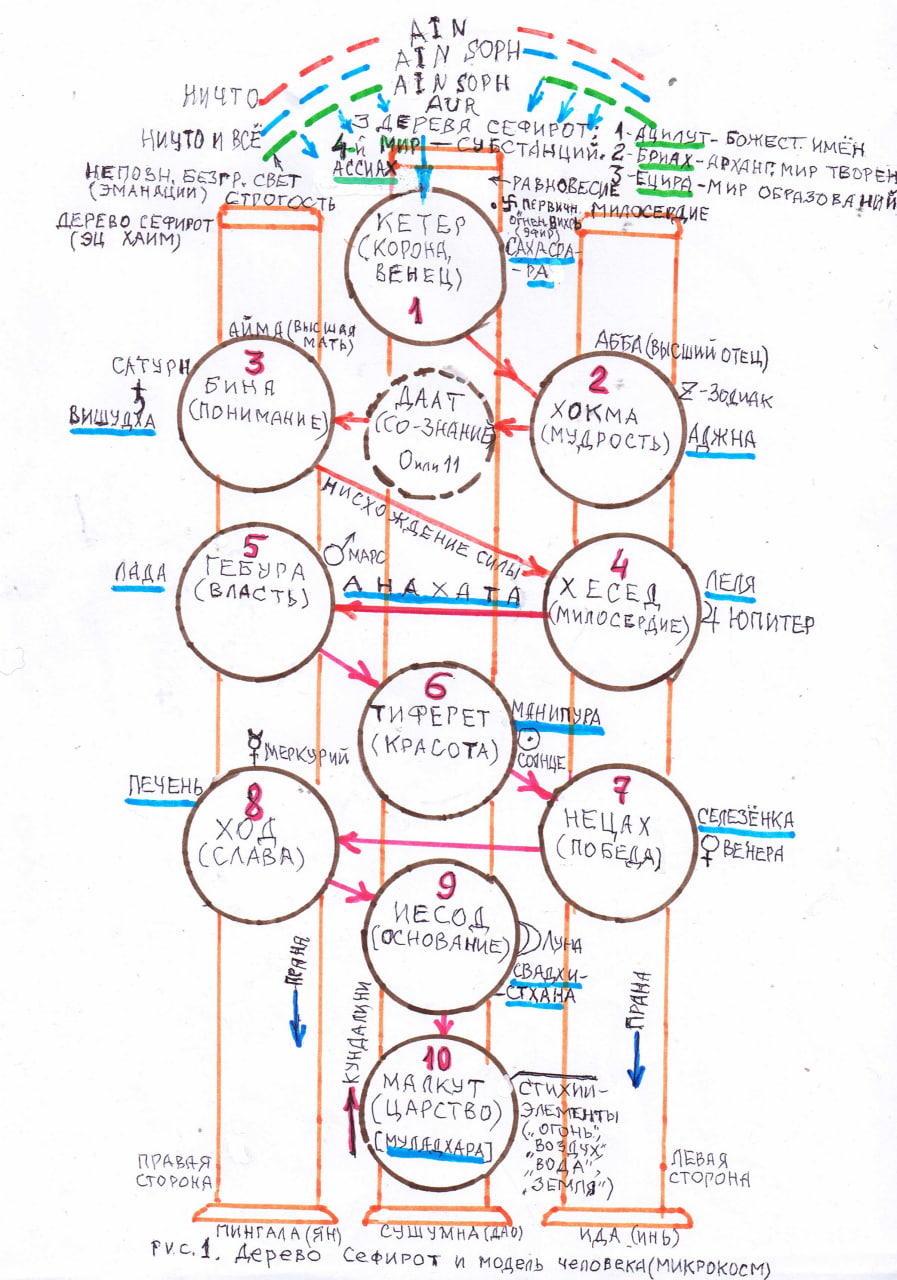 AIN
AIN SOPH
AIN SOPH
AUR
НИЧТО
НИЧТО И ВСЁ
НЕПОЗН. БЕЗГР. СВЕТ
(ЭМАНАЦИИ)
СТРОГОСТЬ
ДЕРЕВО СЕФИРОТ
(ЭЦ ХАИМ)
3 ДЕРЕВА СЕФИРОТ:
4-Й МИР — СУБСТАНЦИЙ.
АССИАХ
1-АЦИЛУТ-БОЖЕСТ. ИМЁН
2-БРИАХ-АРХАНГ. МИР ТВОРЕН
3-ЕЦИРА-МИР ОБРАЗОВАНИЙ
РАВНОВЕСИЕ
МИЛОСЕРДИЕ
卐 ПЕРВИЧН.
ОГНЕН. ВИХРЬ
(ЭФИР)
САХАСРА-
-РА
КЕТЕР
(КОРОНА,
ВЕНЕЦ)
1
АЙМА (ВЫСШАЯ
МАТЬ)
АББА (ВЫСШИЙ ОТЕЦ)
САТУРН
♄
ВИШУДХА
3
БИНА
(ПОНИМАНИЕ)
ДААТ
(СО-ЗНАНИЕ)
0 или 11
2
ХОКМА
(МУДРОСТЬ)
Z-ЗОДИАК
АДЖНА
НИСХОЖДЕНИЕ СИЛЫ
5
ГЕБУРА
(ВЛАСТЬ)
♂ МАРС
ЛАДА
АНАХАТА
4
ХЕСЕД
(МИЛОСЕРДИЕ)
ЛЕЛЯ
♃ ЮПИТЕР
6
ТИФЕРЕТ
(КРАСОТА)
МАНИПУРА
☉
СОЛНЦЕ
☿ МЕРКУРИЙ
ПЕЧЕНЬ
8
ХОД
(СЛАВА)
7
НЕЦАХ
(ПОБЕДА)
СЕЛЕЗЁНКА
♀ ВЕНЕРА
9
ИЕСОД
(ОСНОВАНИЕ)
☽ ЛУНА
СВАДХИ-
-СТХАНА
ПРАНА
ПРАНА
КУНДАЛИНИ
10
МАЛКУТ
(ЦАРСТВО)
[МУЛАДХАРА]
СТИХИИ-
ЭЛЕМЕНТЫ
(„ОГОНЬ",
„ВОЗДУХ",
„ВОДА",
„ЗЕМЛЯ")
ПРАВАЯ
СТОРОНА
ЛЕВАЯ
СТОРОНА
ПИНГАЛА (ЯН)
СУШУМНА (ДАО)
ИДА (ИНЬ)
РИС. 1. Дерево Сефирот и модель человека (МИКРОКОСМ)